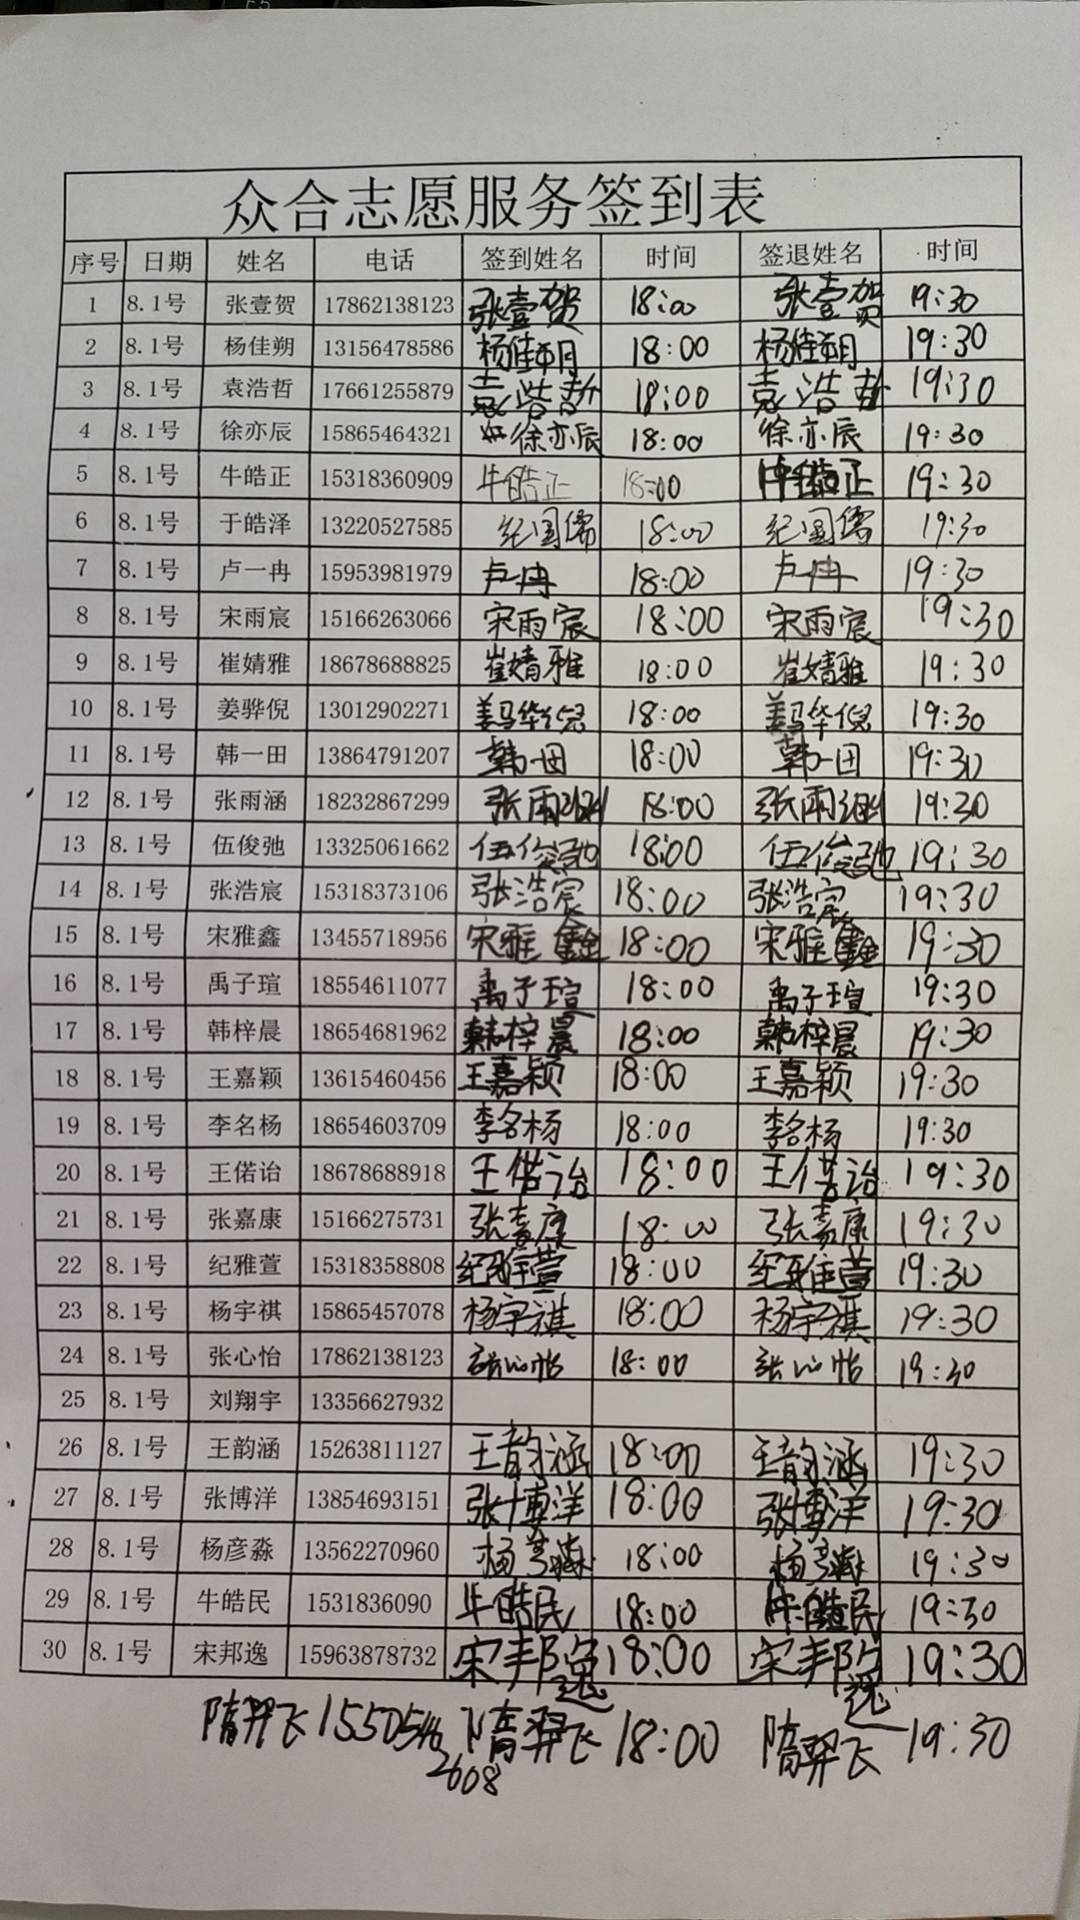 众合志愿服务签到表
序号 日期 姓名 电话 签到姓名 时间 签退姓名 时间
1 8.1号 张壹贺 17862138123 张壹贺 18:00 张壹贺 19:30
2 8.1号 杨佳朔 13156478586 杨佳朔 18:00 杨佳朔 19:30
3 8.1号 袁浩哲 17661255879 袁浩哲 18:00 袁浩哲 19:30
4 8.1号 徐亦辰 15865464321 徐亦辰 18:00 徐亦辰 19:30
5 8.1号 牛皓正 15318360909 牛皓正 18:00 牛皓正 19:30
6 8.1号 于皓泽 13220527585 纪国儒 18:00 纪国儒 19:30
7 8.1号 卢一冉 15953981979 卢一冉 18:00 卢一冉 19:30
8 8.1号 宋雨宸 15166263066 宋雨宸 18:00 宋雨宸 19:30
9 8.1号 崔婧雅 18678688825 崔婧雅 18:00 崔婧雅 19:30
10 8.1号 姜骅倪 13012902271 姜骅倪 18:00 姜骅倪 19:30
11 8.1号 韩一田 13864791207 韩一田 18:00 韩一田 19:30
12 8.1号 张雨涵 18232867299 张雨涵 18:00 张雨涵 19:30
13 8.1号 伍俊弛 13325061662 伍俊弛 18:00 伍俊弛 19:30
14 8.1号 张浩宸 15318373106 张浩宸 18:00 张浩宸 19:30
15 8.1号 宋雅鑫 13455718956 宋雅鑫 18:00 宋雅鑫 19:30
16 8.1号 禹子瑄 18554611077 禹子瑄 18:00 禹子瑄 19:30
17 8.1号 韩梓晨 18654681962 韩梓晨 18:00 韩梓晨 19:30
18 8.1号 王嘉颖 13615460456 王嘉颖 18:00 王嘉颖 19:30
19 8.1号 李名杨 18654603709 李名杨 18:00 李名杨 19:30
20 8.1号 王偌诒 18678688918 王偌诒 18:00 王偌诒 19:30
21 8.1号 张嘉康 15166275731 张嘉康 18:00 张嘉康 19:30
22 8.1号 纪雅萱 15318358808 纪雅萱 18:00 纪雅萱 19:30
23 8.1号 杨宇祺 15865457078 杨宇祺 18:00 杨宇祺 19:30
24 8.1号 张心怡 17862138123 张心怡 18:00 张心怡 19:30
25 8.1号 刘翔宇 13356627932
26 8.1号 王韵涵 15263811127 王韵涵 18:00 王韵涵 19:30
27 8.1号 张博洋 13854693151 张博洋 18:00 张博洋 19:30
28 8.1号 杨彦淼 13562270960 杨彦淼 18:00 杨彦淼 19:30
29 8.1号 牛皓民 1531836090 牛皓民 18:00 牛皓民 19:30
30 8.1号 宋邦逸 15963878732 宋邦逸 18:00 宋邦逸 19:30
隋羿飞 15505462608 隋羿飞 18:00 隋羿飞 19:30